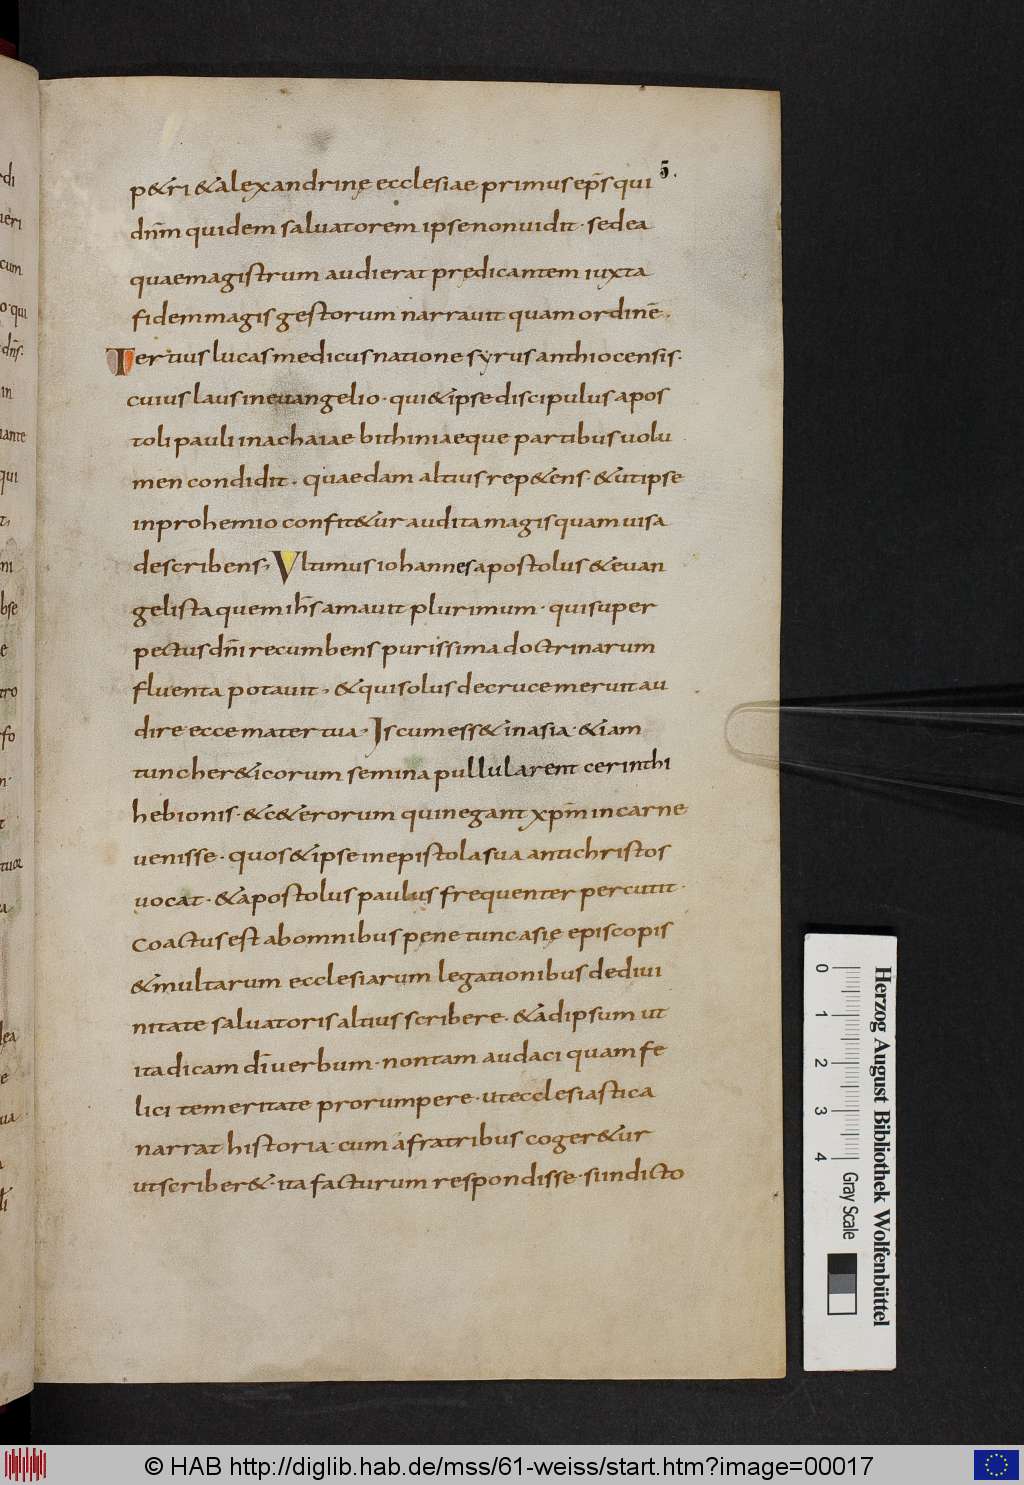 5.
p&ri & alexandrinę ecclesiae primus ep̄s qui
dn̄m quidem saluatorem ipse non uidit · sed ea
quae magistrum audierat prędicantem iuxta
fidem magis gestorum narrauit quam ordinē.
Tertius lucas medicus natione syrus anthiocensis·
cuius laus in euangelio · qui & ipse discipulus apos
toli pauli in achaiae bithiniaeque partibus uolu
men condidit · quaedam altius rep&ens · & ut ipse
in prohemio confit&ur audita magis quam uisa
describens, Vltimus iohannes apostolus & euan
gelista quem ih̄s amauit plurimum · qui super
pectus dn̄i recumbens purissima doctrinarum
fluenta potauit, & qui solus de cruce meruit au
dire ecce mater tua, Is cum ess& in asia · & iam
tunc her&icorum semina pullularent cerinthi
hebionis · & c&erorum qui negant xp̄m in carne
uenisse · quos & ipse in epistola sua antichristos
uocat · & apostolus paulus frequenter percutit ·
Coactus est ab omnibus pęne tunc asię episcopis
& multarum ecclesiarum legationibus de diui
nitate saluatoris altius scribere · & ad ipsum ut
ita dicam dī uerbum · non tam audaci quam fe
lici temeritate prorumpere · ut ecclesiastica
narrat historia · cum a fratribus coger&ur
ut scriber& · ita facturum respondisse · si indicto
Herzog August Bibliothek Wolfenbüttel
0 1 2 3 4 Gray Scale
© HAB http://diglib.hab.de/mss/61-weiss/start.htm?image=00017